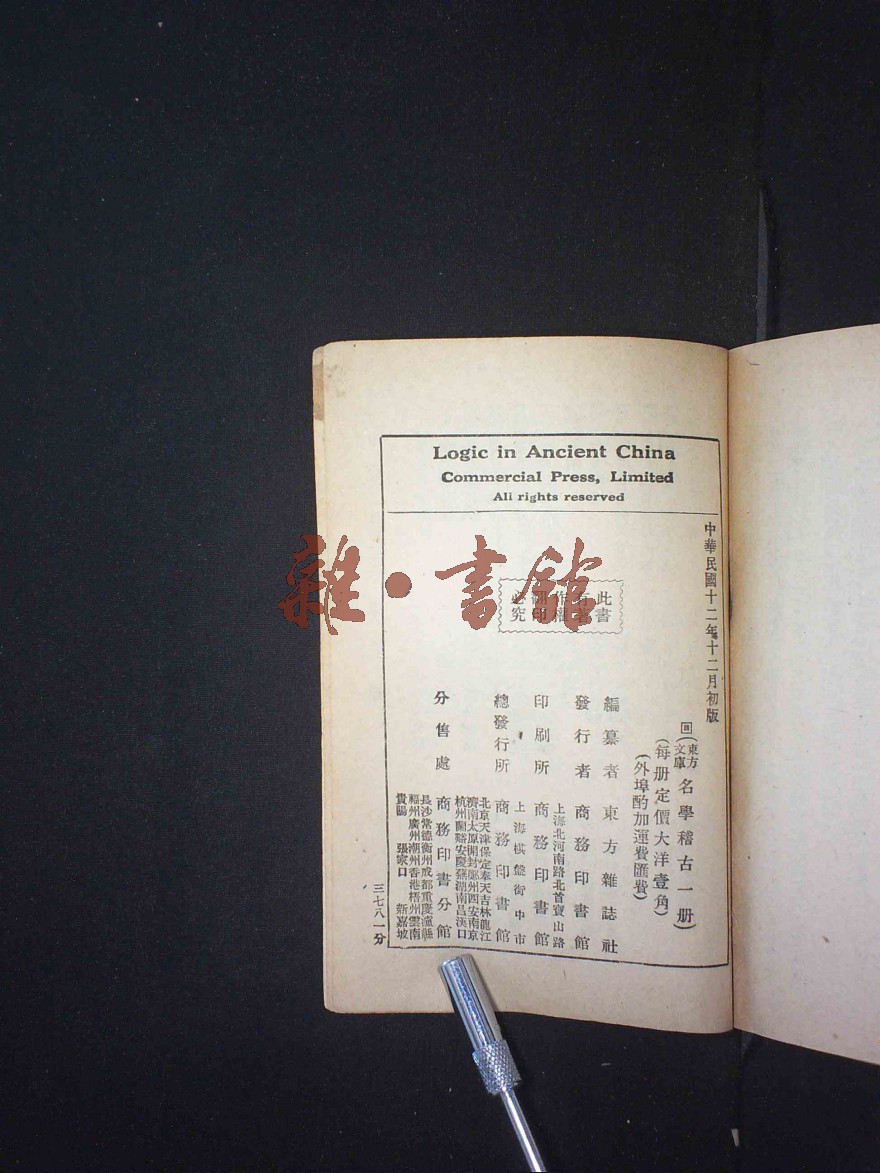 Logic in Ancient China
Commercial Press, Limited
All rights reserved
中華民國十二年十二月初版
(東方文庫)名學稽古一册)
(每册定價大洋壹角)
(外埠酌加運費匯費)
此書
有著
作權
翻印
必究
編纂者 東方雜誌社
發行者 商務印書館
上海北河南路北首寶山路
印刷所 商務印書館
上海棋盤街中市
總發行所 商務印書館
北京天津保定奉天吉林龍江
濟南太原開封鄭州西安南京
杭州蘭谿安慶蕪湖南昌漢口
分售處 商務印書分館
長沙常德衡州成都重慶瀘縣
福州廣州潮州香港梧州雲南
貴陽 張家口 新嘉坡
三七八一分
雜·書館